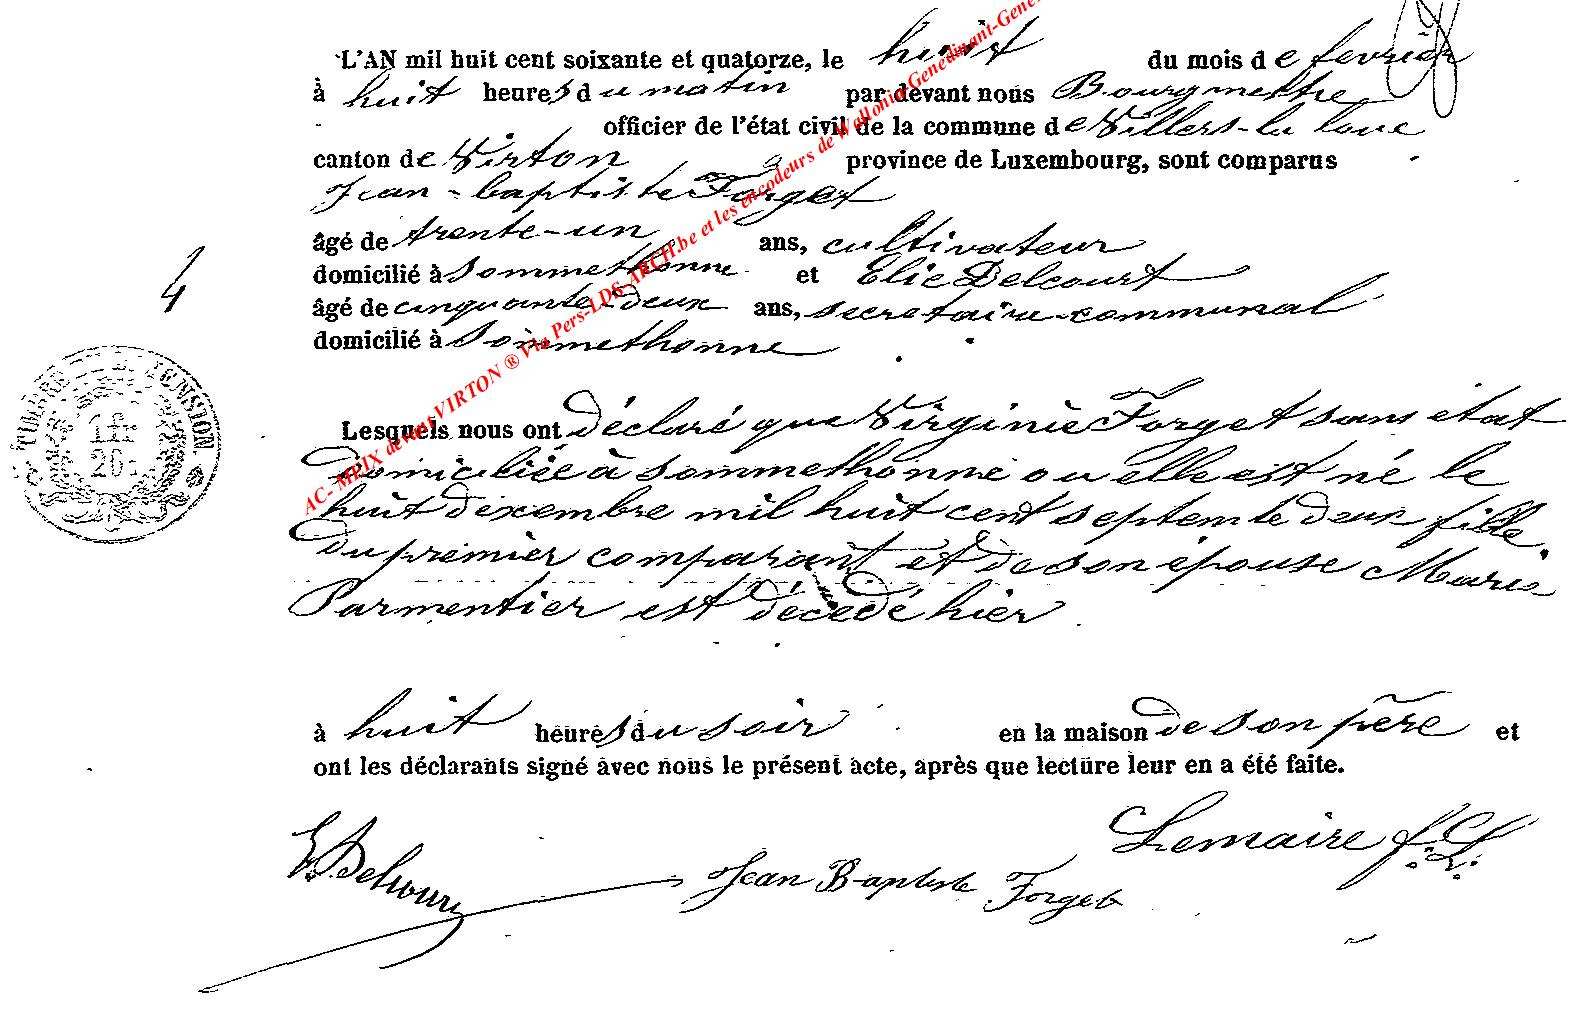 L'AN mil huit cent soixante et quatorze, le huit du mois de fevrier
à huit heures du matin par devant nous Bourgmestre
officier de l'état civil de la commune de Villers-la loue
canton de Virton province de Luxembourg, sont comparus
Jean-baptiste Forget
âgé de trente-un ans, cultivateur
domicilié à Sommethonne et Elie Delcourt
âgé de cinquante-deux ans, secretaire-communal
domicilié à Sommethonne
4
TIMBRE EXTENSION
1 fr
20
Lesquels nous ont déclaré que Virginie Forget sans état
domiciliée à Sommethonne ou elle est né le
huit dixembre mil huit cent septente deux fille
du premier comparant et de son épouse Marie
Parmentier est décedé hier
à huit heures du soir en la maison de son père et
ont les déclarants signé avec nous le présent acte, après que lecture leur en a été faite.
Lemaire f.L.
E. Delcourt Jean Baptiste Forget
AC- MPIX de/sur VIRTON ® Via Pers-LDS-ARCH.be et les encodeurs de Wallonia Genedinant-Gene